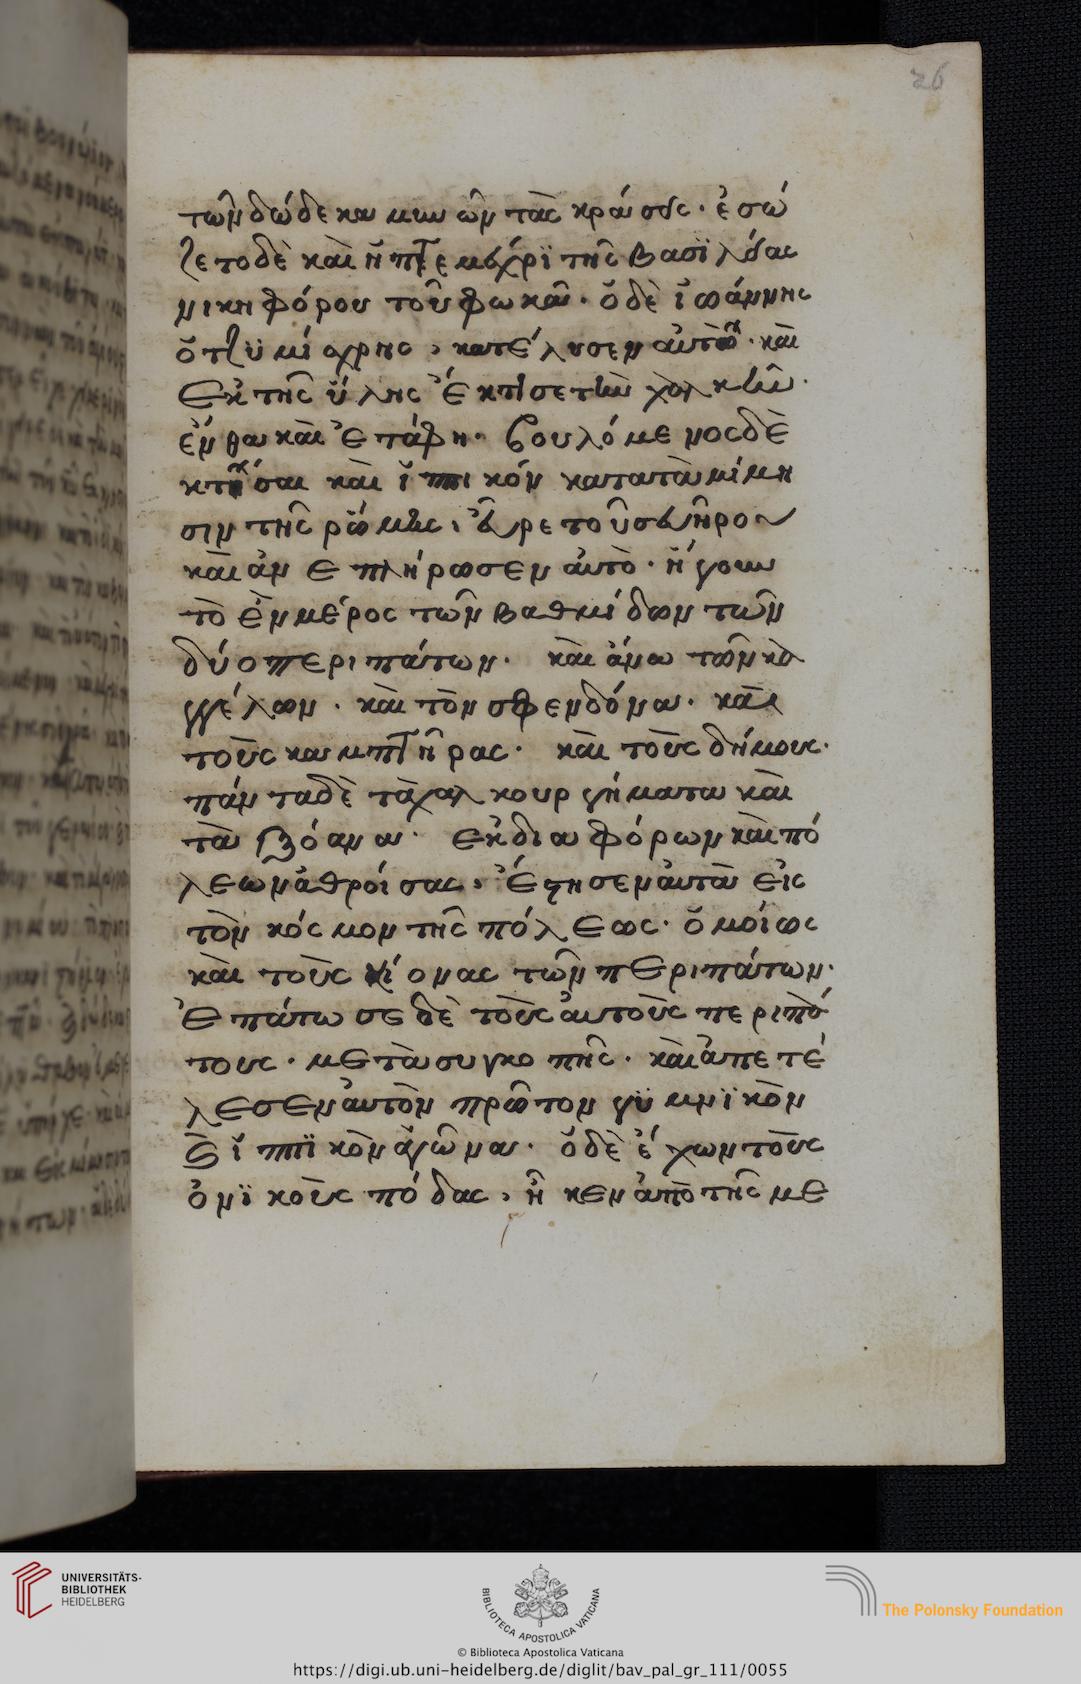 26
τῶν δώδεκα μηνῶν τὰς κράσεις· ἐσώ
ζετο δὲ καὶ ἡ πτέ μέχρϊ τῆς βασϊλείας
νικηφόρου τοῦ φωκᾶ· ὁ δὲ ἰωάννης
ὁ τζϋμίσχης, κατέλυσεν αὐτὸ· καὶ
ἐκ τῆς ὕλης ἔκτισε τὴν χαλκῆν·
ἔνθα καὶ ἐτάφη· βουλόμενος δὲ
κτῆσαι καὶ ἱππικόν κατὰ τὰ μίμη
σιν τῆς ῥώμης, εὗρε τοῦ σευήρου
καὶ ἀνεπλήρωσεν αὐτὸ· ἤγουν
τὸ ἓν μέρος τῶν βαθμίδων τῶν
δύο περιπάτων· καὶ ἄνω τῶν κα
γγέλων· καὶ τὸν σφενδόνα· καὶ
τοὺς καμπτῆρας· καὶ τοὺς δήμους·
πάντα δὲ τὰ χαλκουργήματα καὶ
τὰ ξόανα· ἐκ διαφόρων καὶ πό
λεων ἀθροίσας, ἔστησεν αὐτὰ εἰς
τὸν κόσμον τῆς πόλεως· ὁμοίως
καὶ τοὺς κίονας τῶν περιπάτων·
ἐπάτωσε δὲ τοὺς αὐτοὺς περιπά
τους· μετὰ συγκοπῆς· καὶ ἀπετέ
λεσεν αὐτὸν πρῶτον γϋμνϊκὸν
καὶ ἱππϊκὸν ἀγῶνα· ὁ δὲ ἔχων τοὺς
ὀνϊκοὺς πόδας, ἧκεν ἀπὸ τῆς με
UNIVERSITÄTS-
BIBLIOTHEK
HEIDELBERG
BIBLIOTECA APOSTOLICA VATICANA
The Polonsky Foundation
© Biblioteca Apostolica Vaticana
https://digi.ub.uni-heidelberg.de/diglit/bav_pal_gr_111/0055